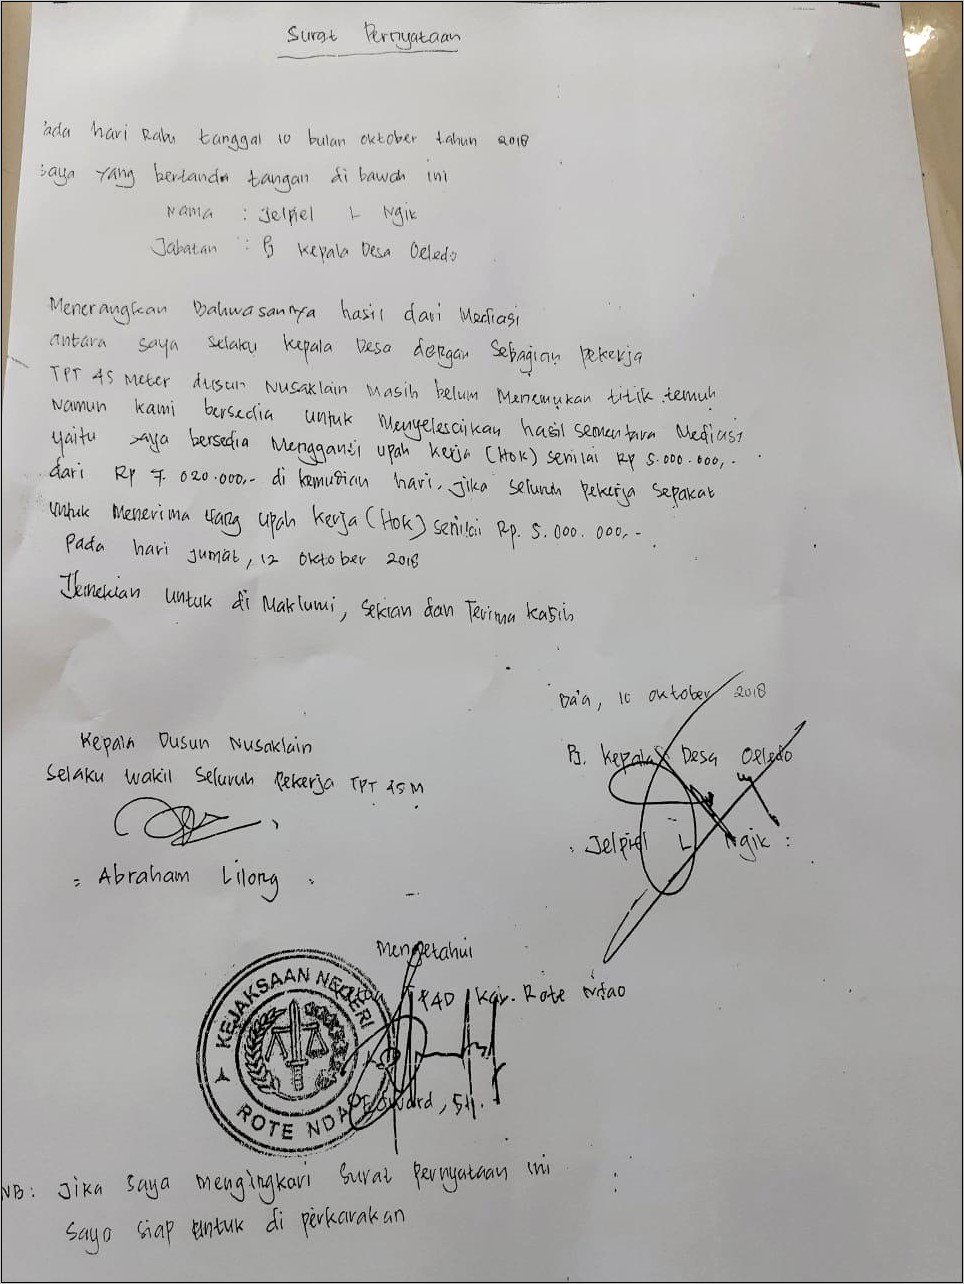 Surat Pernyataan
ada hari Rabu tanggal 10 bulan oktober tahun 2018
saya yang bertanda tangan di bawah ini
Nama : Jelpiel L Ngik
Jabatan : Pj Kepala Desa Oeledo
Menerangkan Bahwasannya hasil dari Mediasi
antara saya selaku Kepala Desa dengan sebagian pekerja
TPT 45 Meter dusun Nusaklain Masih belum Menemukan titik temuh
Namun kami bersedia untuk Menyelesaikan hasil sementara Mediasi
yaitu saya bersedia Mengganti upah kerja (Hok) senilai Rp 5.000.000,-
dari Rp 7.020.000,- di kemudian hari, jika seluruh pekerja sepakat
untuk Menerima uang upah kerja (Hok) senilai Rp. 5.000.000,-
Pada hari jumat, 12 oktober 2018
Demekian untuk di Maklumi, sekian dan Terima kasih
Ba'a, 10 oktober 2018
Kepala Dusun Nusaklain
Selaku wakil Seluruh Pekerja TPT 45 M
Pj. Kepala Desa Oeledo
Jelpiel L Ngik
= Abraham Lilong
Mengetahui
Kejr. Rote Ndao
KEJAKSAAN NEGERI
ROTE NDAO
Edward, SH.
NB : Jika saya mengingkari surat pernyataan ini
saya siap untuk di perkarakan